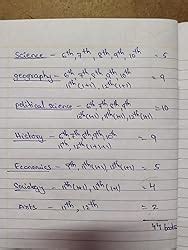 Science - 6th, 7th, 8th, 9th, 10th = 5
geography - 6th 7th 8th 9th 10th = 9
11th (1+1), 12th (1+1)
political science - 6th 7th 8th 9th =10
10th, 11th (1+1), 12th (1+1)
History - 6th, 7th, 8th, 9th, 10th = 9
11th (1+1), 12th (1+1)
Economics - 9th, 11th (1+1), 12th (1+1) = 5
Sociology - 11th (1+1), 12th (1+1) = 4
Arts - 11th, 12th = 2
44 books